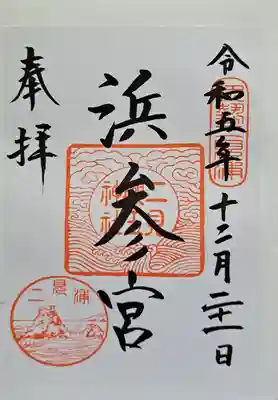 令和五年十二月二十一日
浜参宮
奉拝
二見浦